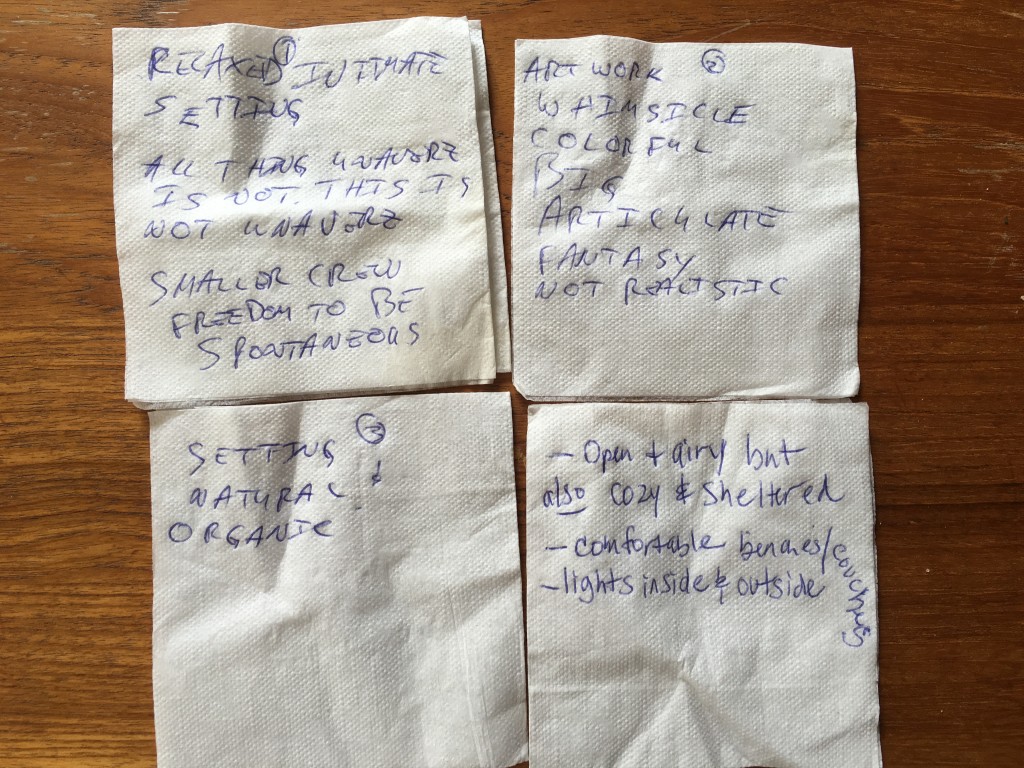 RELAXED ① INTIMATE
SETTING
ALL THING UNAVERZ
IS NOT. THIS IS
NOT UNAVERZ
SMALLER CREW
FREEDOM TO BE
SPONTANEOUS
ARTWORK ②
WHIMSICLE
COLORFUL
BIG
ARTICULATE
FANTASY
NOT REALISTIC
SETTING ③
NATURAL &
ORGANIC
- Open + airy but
also cozy & sheltered
- comfortable benches/couches
- lights inside & outside